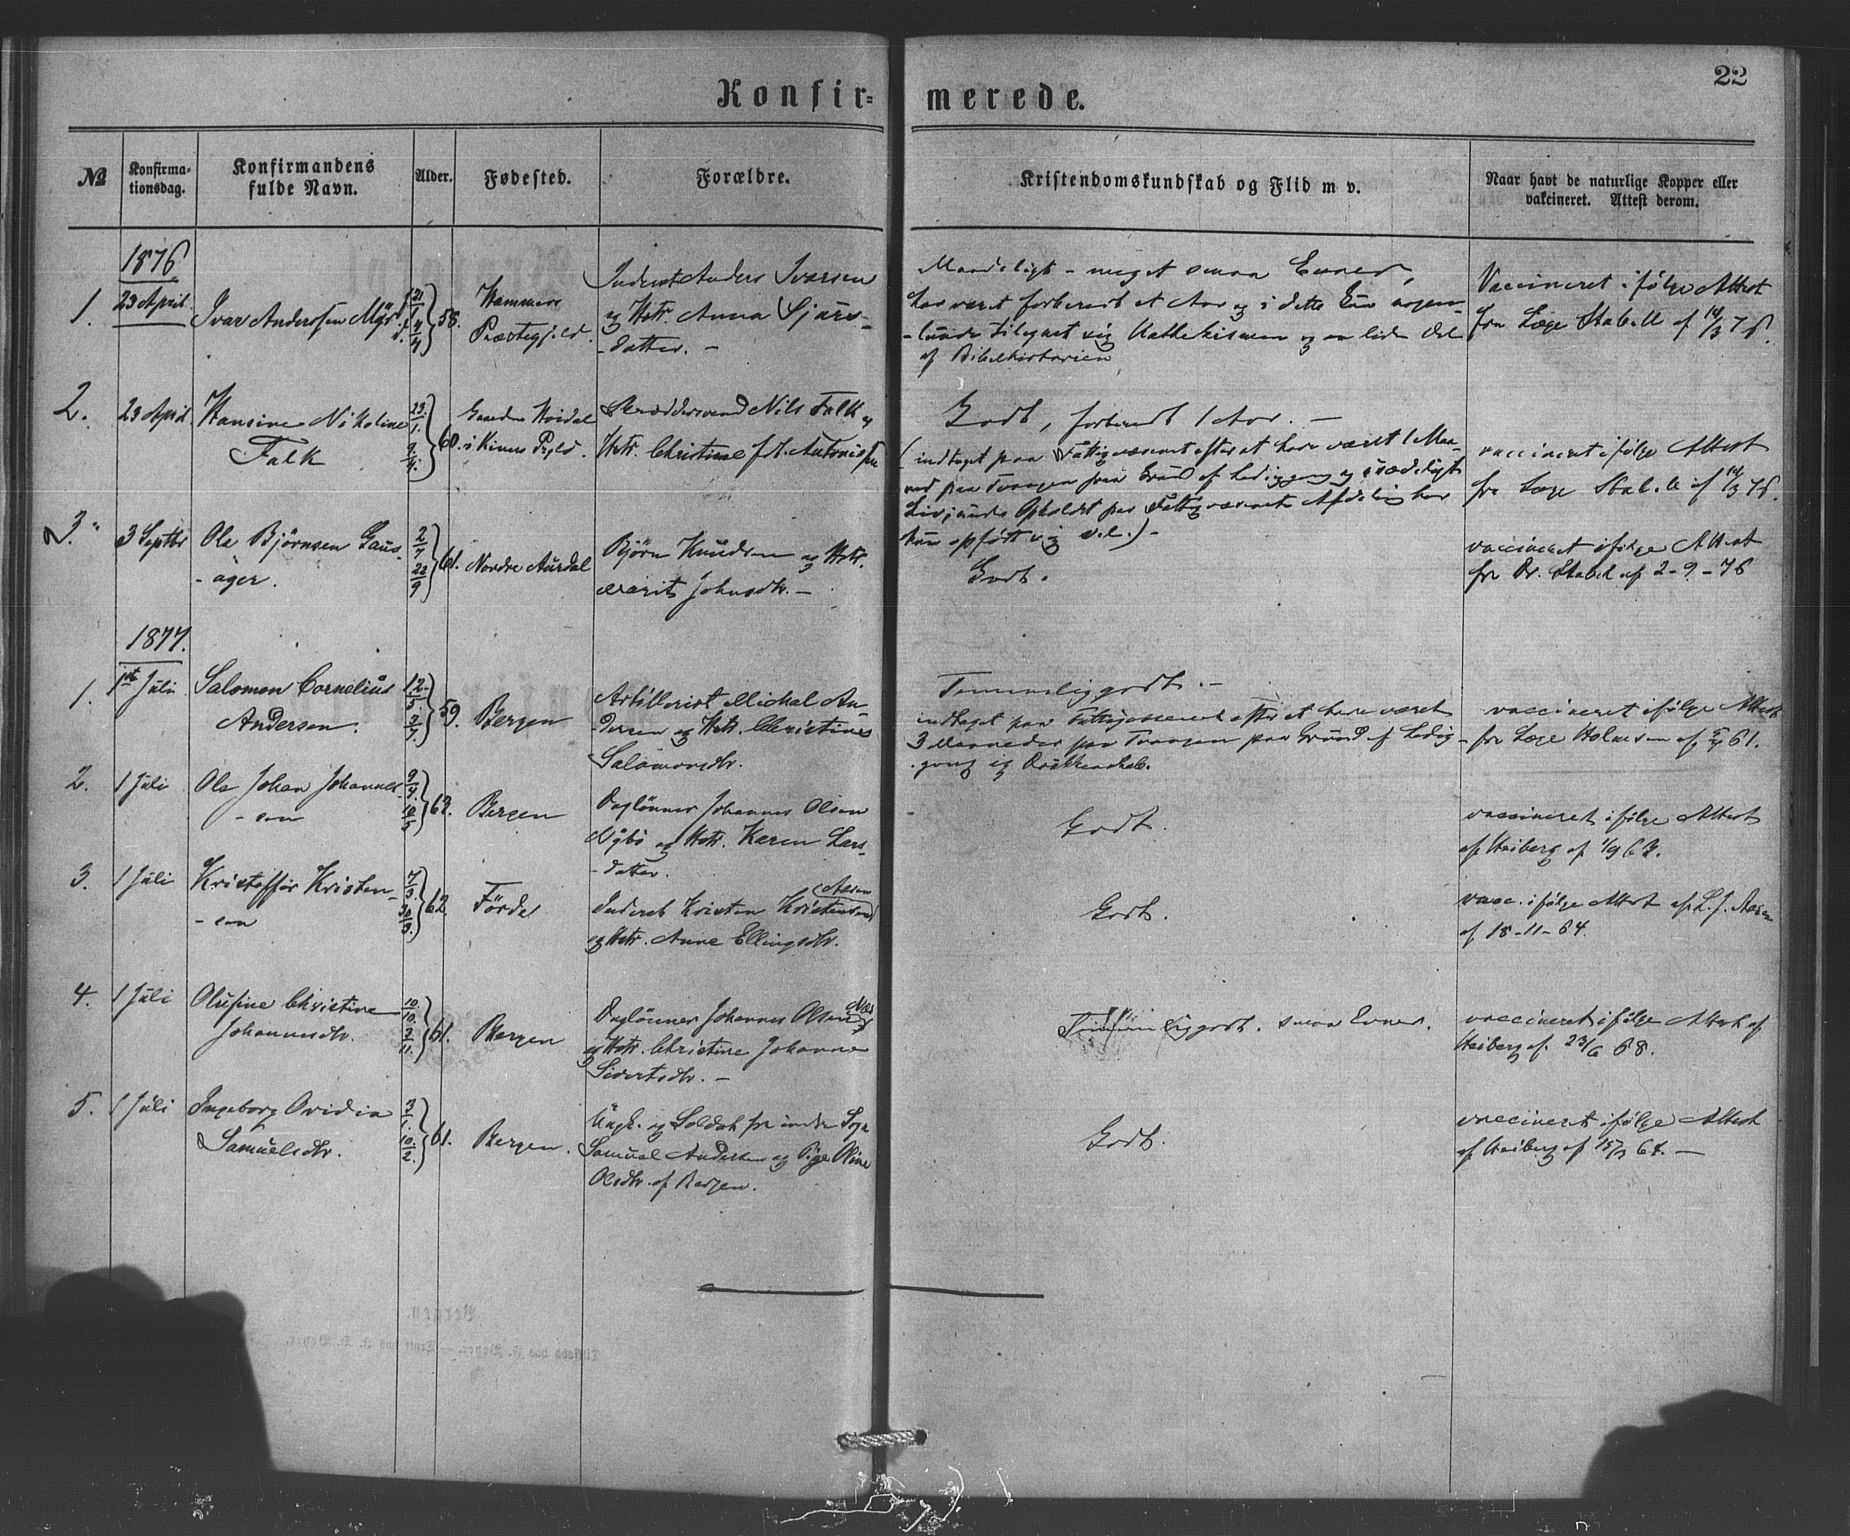 22
Konfir- merede.
№ Konfirma- tionsdag. Konfirmandens fulde Navn. Alder. Fødested. Forældre. Kristendomskundskab og Flid m v. Naar havt de naturlige Kopper eller vakcineret. Attest derom.
1876
1. 23 April Ivar Andersen 58. Hammers Præstegjeld. Inderst Anders Ivarsen
og Hstr. Anna Sjurs-
datter. -
Maadeligt - meget smaa Evner,
har været forberedt et Aar og i dette kun nogen-
lunde tilegnet sig Kathekismen og en liden Del
af Bibelhistorien
Vaccineret ifølge Attest
fra Læge Stabell af 14/3 76.
2. 23 April Hansine Nikoline
Falk
23/1 60. i Kinns Pgjld. Skræddersvend Nils Falk og
Hstr. Christine f.
Godt, forberedt 1 Aar. -
(indtaget paa Fattigvæsenet efter at have været 1 Maa-
ned paa Tvangen paa Grund af Lediggang og usædeligt
Liv; under Opholdet paa Fattigvæsenets Afdeling har
hun opført sig vel.) -
vaccineret ifølge Attest
fra Læge Stabell af 14/3 76.
3. 3 Septbr Ole Björnsen Gaus-
-ager.
2/7 22/9 61. Nordre Aurdal Björn Knudsen og Hstr.
Marit Johnsdtr. -
Godt.
vaccineret ifølge Attest
fra Dr. Stabell af 2-9-76
1877.
1. 1st Juli Salomon Cornelius
Andersen.
59. Bergen Artillerist Michal An-
dersen og Hstr. Christine
Salomonsdtr.
Temmelig godt. -
indtaget paa Fattigvæsenet efter at have været
3 Maaneder paa Tvangen paa Grund af Ledig-
gang og Drukkenskab.
vaccineret ifølge Attest
fra Læge Holmsen af 61.
2. 1 Juli Ole Johan Johannes-
-sen
63. Bergen Daglönner Johannes Olsen
Nybö og Hstr. Karen Lars-
-datter.
Godt.
vaccineret ifølge Attest
af Heiberg af 1/9 63.
3. 1 Juli Kristoffer Kristen-
-sen
62. Förde Inderst Kristen Kristensen (Aasen)
og Hstr. Anne Ellingsdtr.
Godt.
vacc. ifølge Attest af L. J. Aasen
af 18-11-64.
4. 1 Juli Olufine Christine
Johannesdtr.
10/10. 2/11. 61. Bergen Daglönner Johannes Olsen Næs
og Hstr. Christine Johanne
Sivertsdtr. -
Temmelig godt. smaa Evner.
vaccineret ifølge Attest af
Heiberg af 23/6 68.
5. 1 Juli Ingeborg Ovidia
Samuelsdtr.
3/1. 10/2. 61. Bergen. Ungk. og Soldat fra indre Sogn
Samuel Andersen og Pige Oline
Olsdtr. af Bergen.
Godt.
vaccineret ifølge Attest
af Heiberg af 64. -